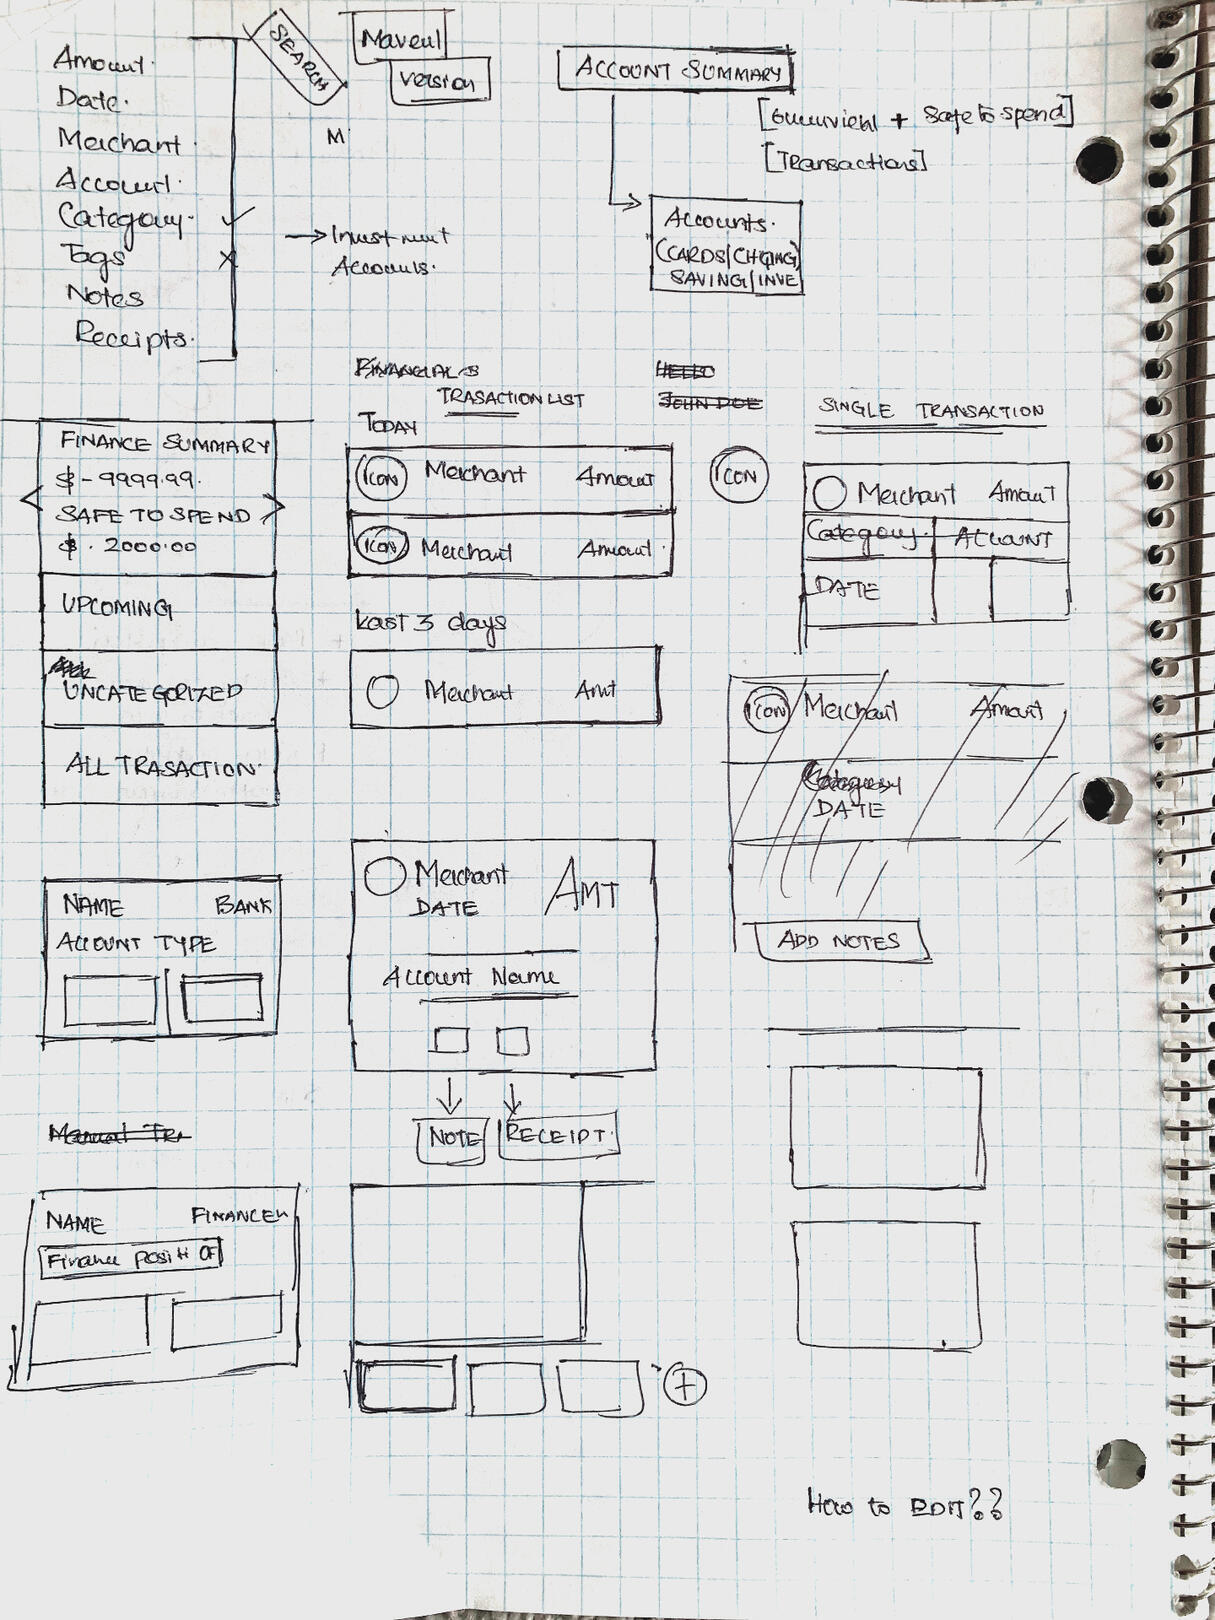 Amount.
Date.
Merchant.
Account.
Category. ✓
Tags x
Notes
Receipts.
SEARCH
version
M
→ Investment
Accounts.
ACCOUNT SUMMARY
+ Safe to spend]
[Transactions]
Accounts.
SAVING/INVE
FINANCE SUMMARY
$ - 9999.99.
SAFE TO SPEND
$ . 2000.00
< >
UPCOMING
UNCATEGORIZED
ALL TRASACTION.
FINANCIAL S
TRASACTION LIST
TODAY
ICON Merchant Amount
ICON Merchant Amount.
Last 3 days
Merchant Amt
HELLO
JOHN DOE
SINGLE TRANSACTION
ICON
Merchant Amount
Category. ACCOUNT
DATE
ICON Merchant Amount
Category
DATE
ADD NOTES
NAME BANK
ACCOUNT TYPE
Merchant AMT
DATE
Account Name
NOTE RECEIPT.
Manual Tra
NAME
+
How to EDIT??